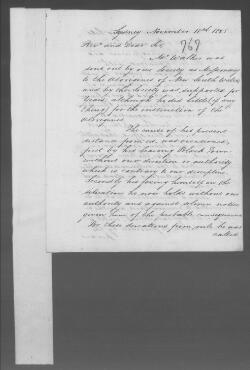 Sydney November 10th 1825
Revd and Dear Sir
769
Mr Walker was
sent out by our Society as Missionary
to the Aborigines of New South Wales
and by the Society was supported for
Years, although he did little if any
thing for the instruction of the
Aborigines
The cause of his present
distance from us, was occasioned,
first by his leaving Black Town
without our direction or authority
which is contrary to our discipline.
Secondly his fixing himself in the
situation he now holds without our
authority and against solemn notice
given him of the probable consequences
By these deviations from rule he was